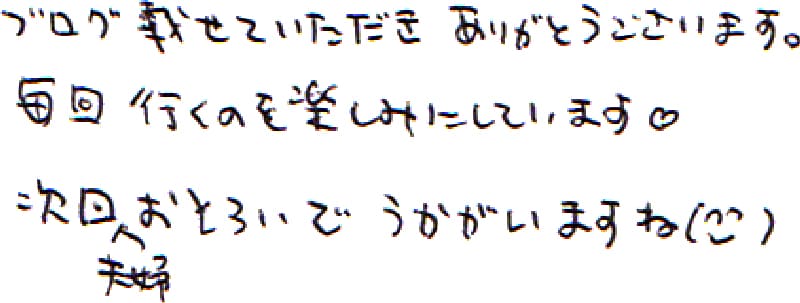 ブログ載せていただき ありがとうございます。
毎回 行くのを楽しみにしています♡
次回夫婦おそろいで うかがいますね(^^)